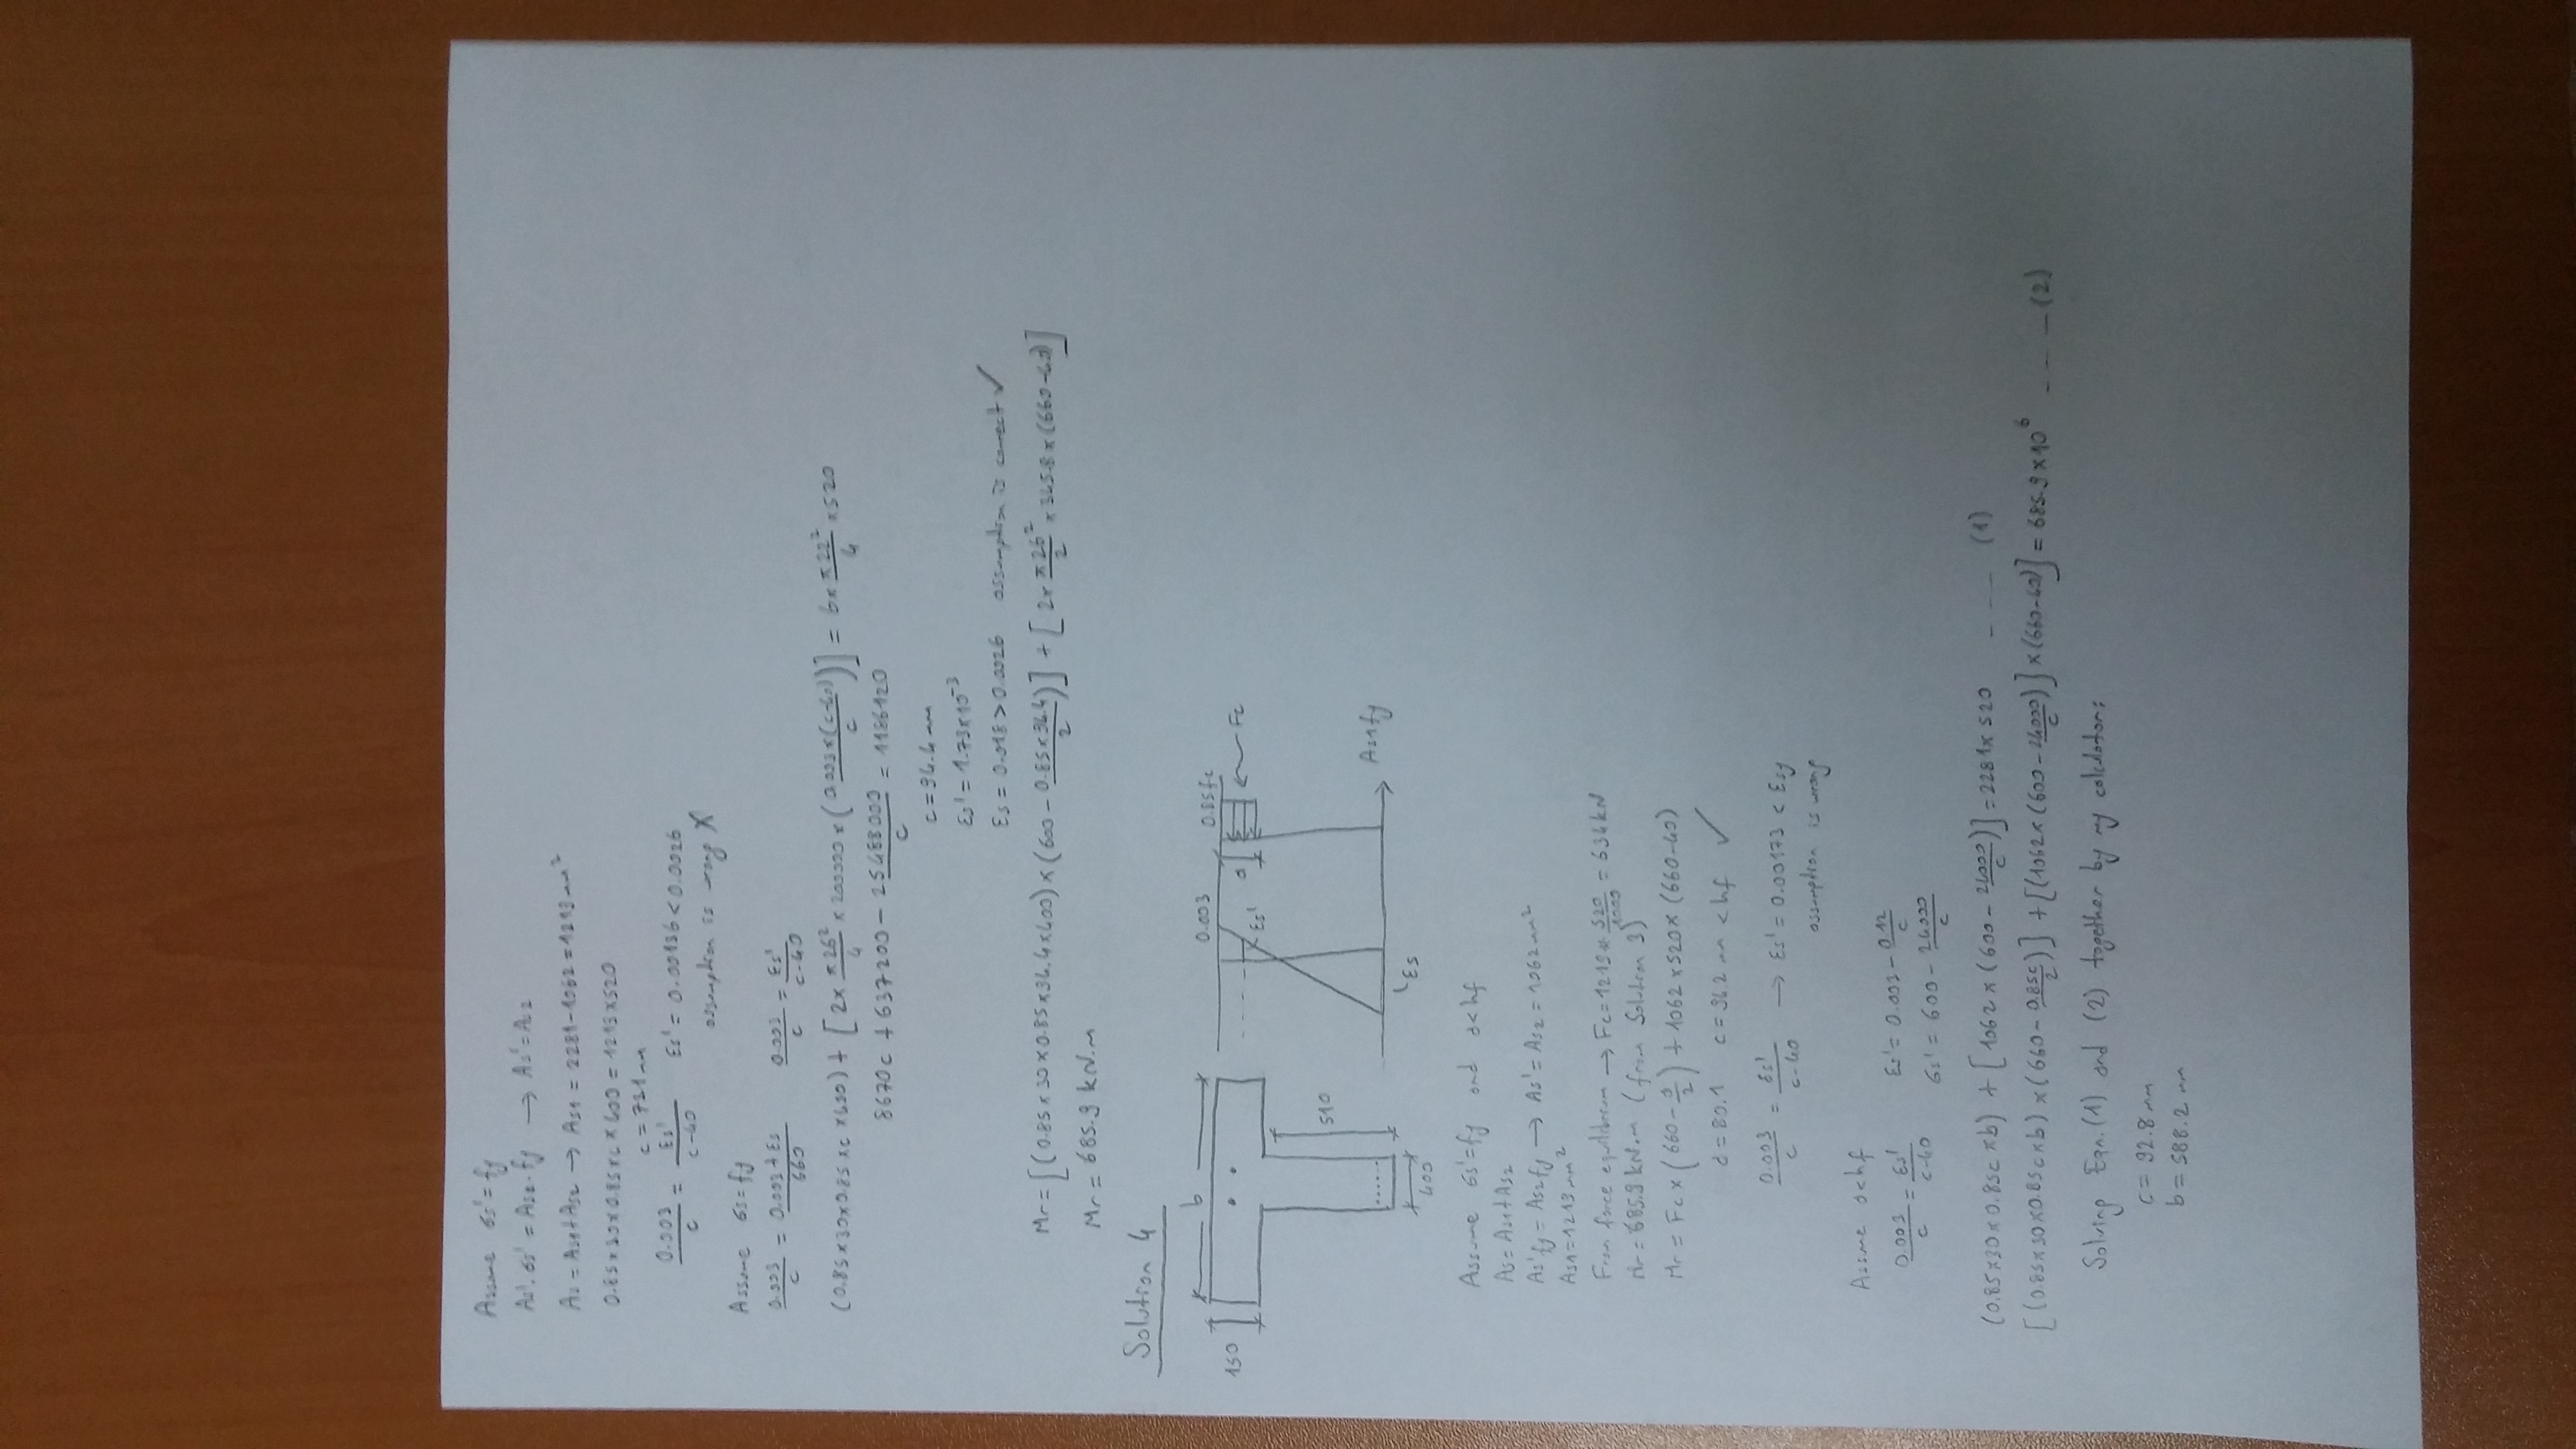 Assume σs' = fy
As'.σs' = As2.fy → As' = As2
As = As1+As2 → As1 = 2281-1062 = 1219 mm²
0.85x30x0.85xc x 400 = 1219x520
c = 73.1 mm
0.003/c = Es'/(c-40)    Es' = 0.00136 < 0.0026
assumption is wrong X
Assume σs=fy
0.003/c = (0.003+Es)/660    0.003/c = Es'/(c-40)
(0.85x30x0.85xcx400) + [2x π26²/4 x 200000x(0.003x(c-40)/c)] = 6x π22²/4 x520
8670c + 637200 - 25488000/c = 1186120
c = 94.4 mm
Es' = 1.73x10⁻³
Es = 0.018 > 0.0026 assumption is correct ✓
Mr = [(0.85x30x0.85x94.4x400)x(600 - 0.85x94.4/2)] + [2x π26²/2 x345.8x(660-40)]
Mr = 685.9 kN.m
Solution 4
b
0.003
0.85fc
150
a
Es'
Fc
510
As1fy
Es
400
Assume σs'=fy and a<hf
As = As1+As2
As'fy = As2fy → As' = As2 = 1062 mm²
As1 = 1219 mm²
From force equilibrium → Fc = 1219* 520/1000 = 634 kN
Mr = 685.9 kN.m (from Solution 3)
Mr = Fcx(660 - a/2) + 1062x520x(660-40)
a = 80.1    c = 94.2 mm < hf ✓
0.003/c = Es'/(c-40) → Es' = 0.00173 < Esy
assumption is wrong
Assume a<hf
0.003/c = Es'/(c-40)    Es' = 0.003 - 0.12/c
σs' = 600 - 24000/c
(0.85x30x0.85cxb) + [1062x(600 - 24000/c)] = 2281x520 --- (1)
[(0.85x30x0.85cxb)x(660 - 0.85c/2)] + [(1062x(600 - 24000/c)]x(660-40)] = 685.9x10⁶ --- (2)
Solving Eqn.(1) and (2) together by my calculator;
c = 92.8 mm
b = 588.2 mm